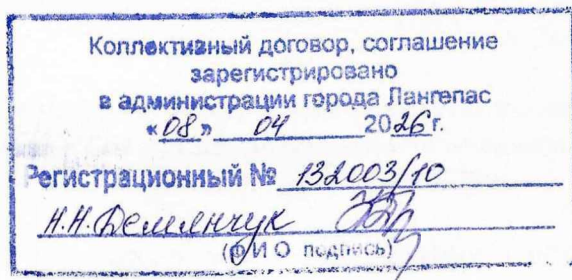 Коллективный договор, соглашение
зарегистрировано
в администрации города Лангепас
«08» 04 2026г.
Регистрационный № 132003/10
Н.Н. Демянчук
(ФИО подпись)